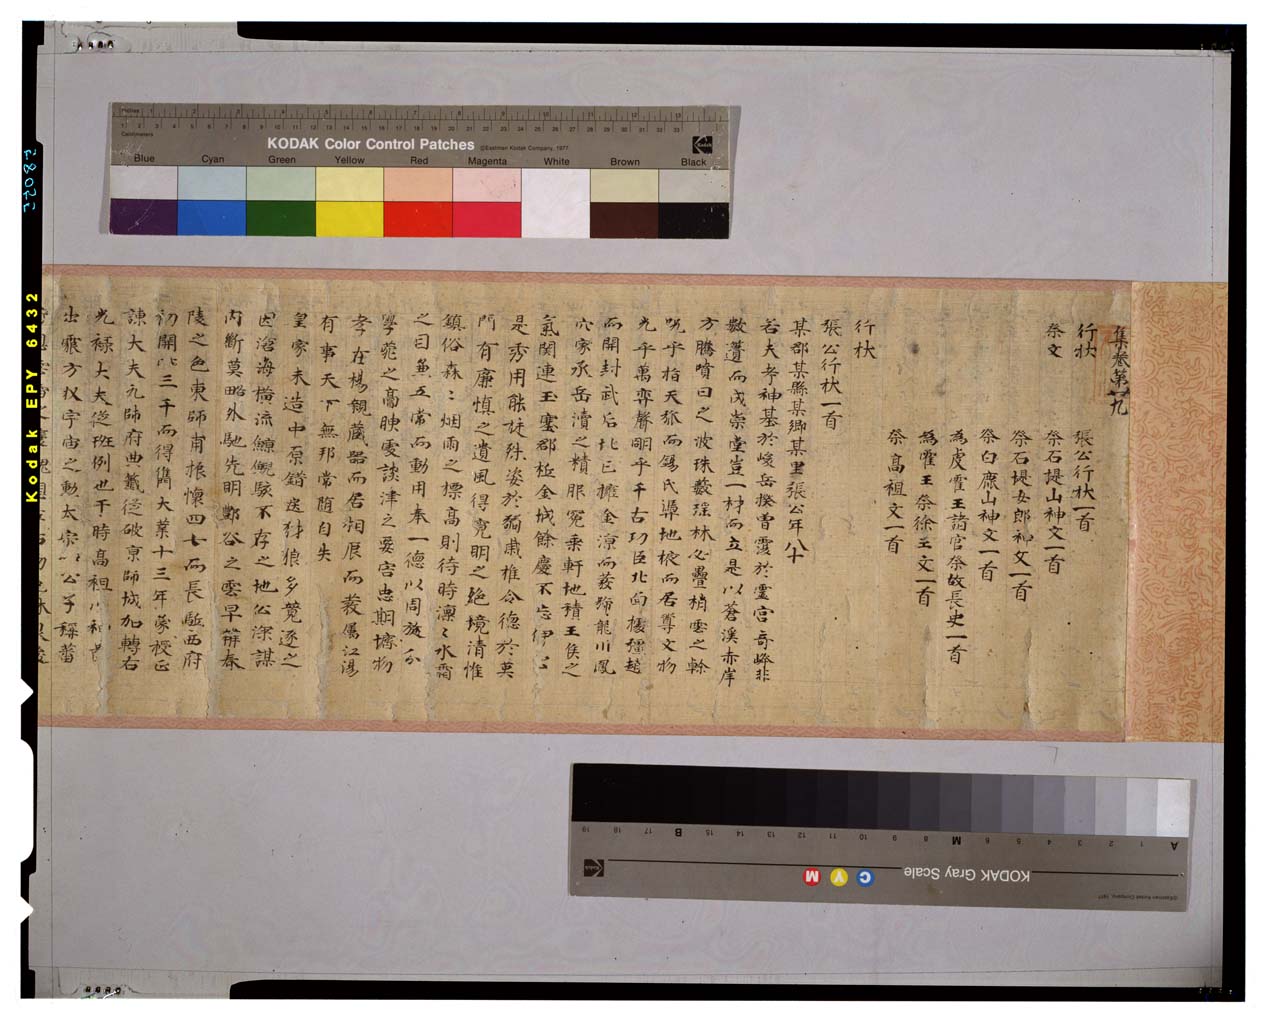 KODAK Color Control Patches
©Eastman Kodak Company, 1977
Inches
Centimeters
Blue Cyan Green Yellow Red Magenta White Brown Black
集卷第廿九
行狀
張公行狀一首
祭文
祭石堤山神文一首
祭石堤女郎神文一首
祭白鹿山神文一首
為虔霍王諸官祭故長史一首
為霍王祭徐王文一首
祭高祖文一首
行狀
張公行狀一首
某郡某縣某鄉某里張公年八十
若夫考神基於峻岳揆曾霞於靈宮奇峰非
數簣而成崇堂豈一材而立是以蒼溪赤岸
方騰噴日之波珠藪瑶林必疊梢雲之幹
況乎指天弧而錫氏滙地棭而居尊文物
光乎萬弈聲明乎千古功臣北面援彊趙
而開封武后北已擁金涼而蕟蹄龍川鳳
穴家承岳瀆之精服冕乗軒地積王侯之
氣関連玉壘郡枕金城餘慶不忘伊公
是秀用能誕殊姿於弱歲椎令德於英
門有廉慎之遺風得寛明之絶境清惟
鎮俗森〻烟雨之標高則待時凛〻水霜
之日兼五常而動用奉一德以周旋
學苑之高映雯談津之要害忠期壖物
孝在楊親蔵器而居相展而蕟屬江湯
有事天下無邦常随自失
皇家未造中原錯迭豺狼多競逐之
因滄海横流鯨鯢駭不存之地公深謀
内斷莫略外馳先明鄭谷之雲早離春
陵之色東師甫振懷四七而長駈西府
初開 三千而得儁大業十三年蒙授正
諫大夫九師府典籤從破京師城加轉右
光禄大夫從班例也于時高祖
出震方収宇宙之勳太宗 公子
Kodak EPY 6432
32083
KODAK Gray Scale
©Eastman Kodak Company, 1977
C Y M
A 1 2 3 4 5 6 M 8 9 10 11 12 13 14 15 B 17 18 19